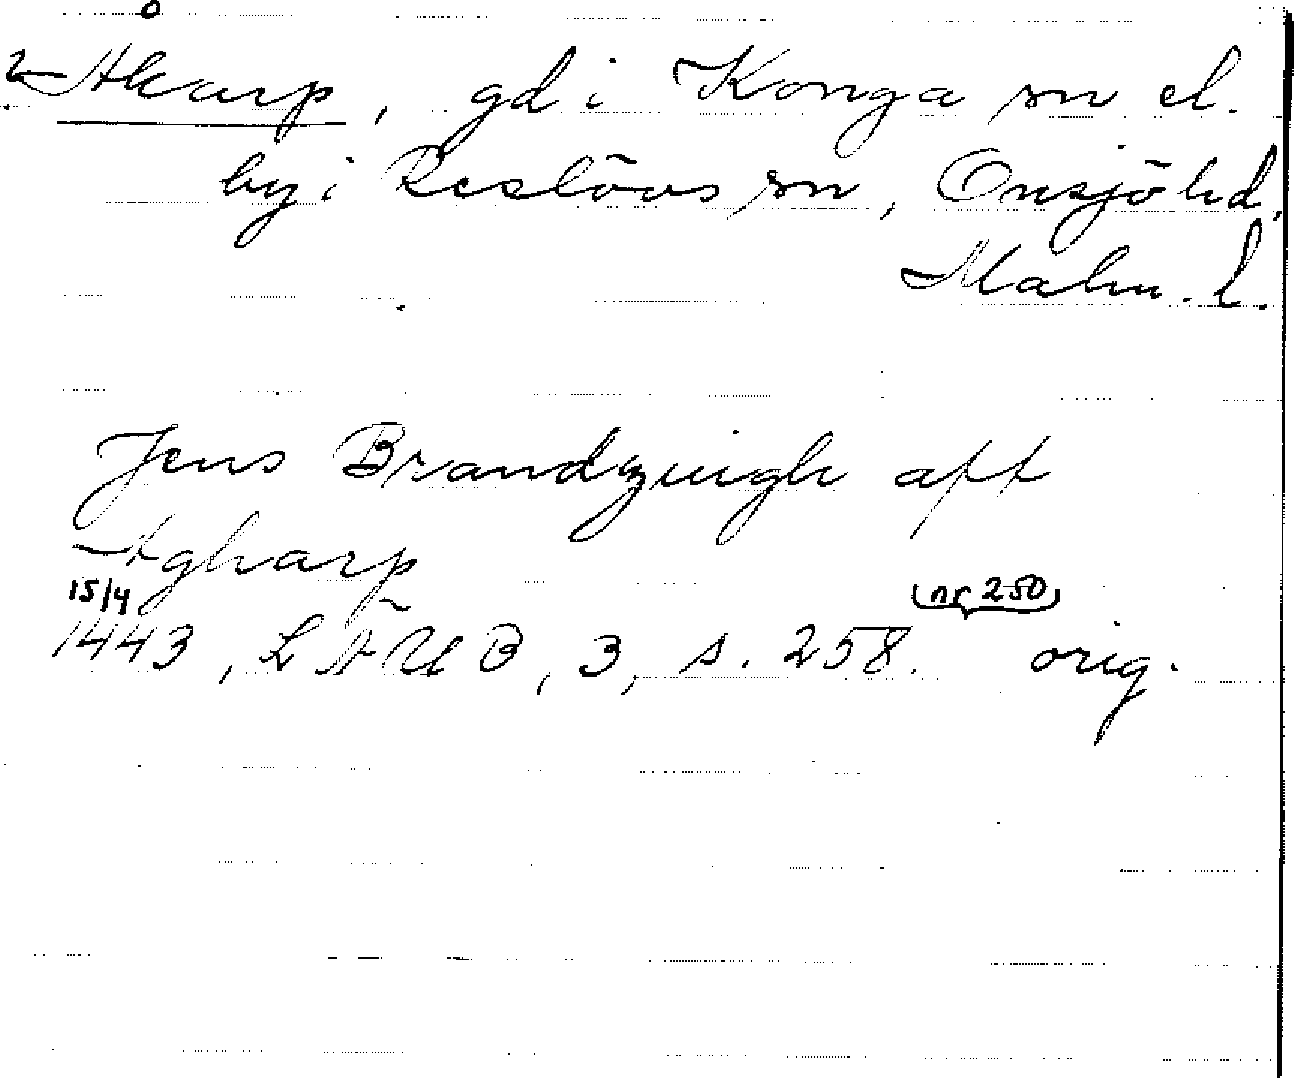 Åkarp, gd i Konga sn el.
by i Reslövs sn, Onsjö hd,
Malm. l.
Jens Brandzuigh aff
Agharp
15/4 (nr 250)
1443, LÄUB, 3, s. 258. orig.